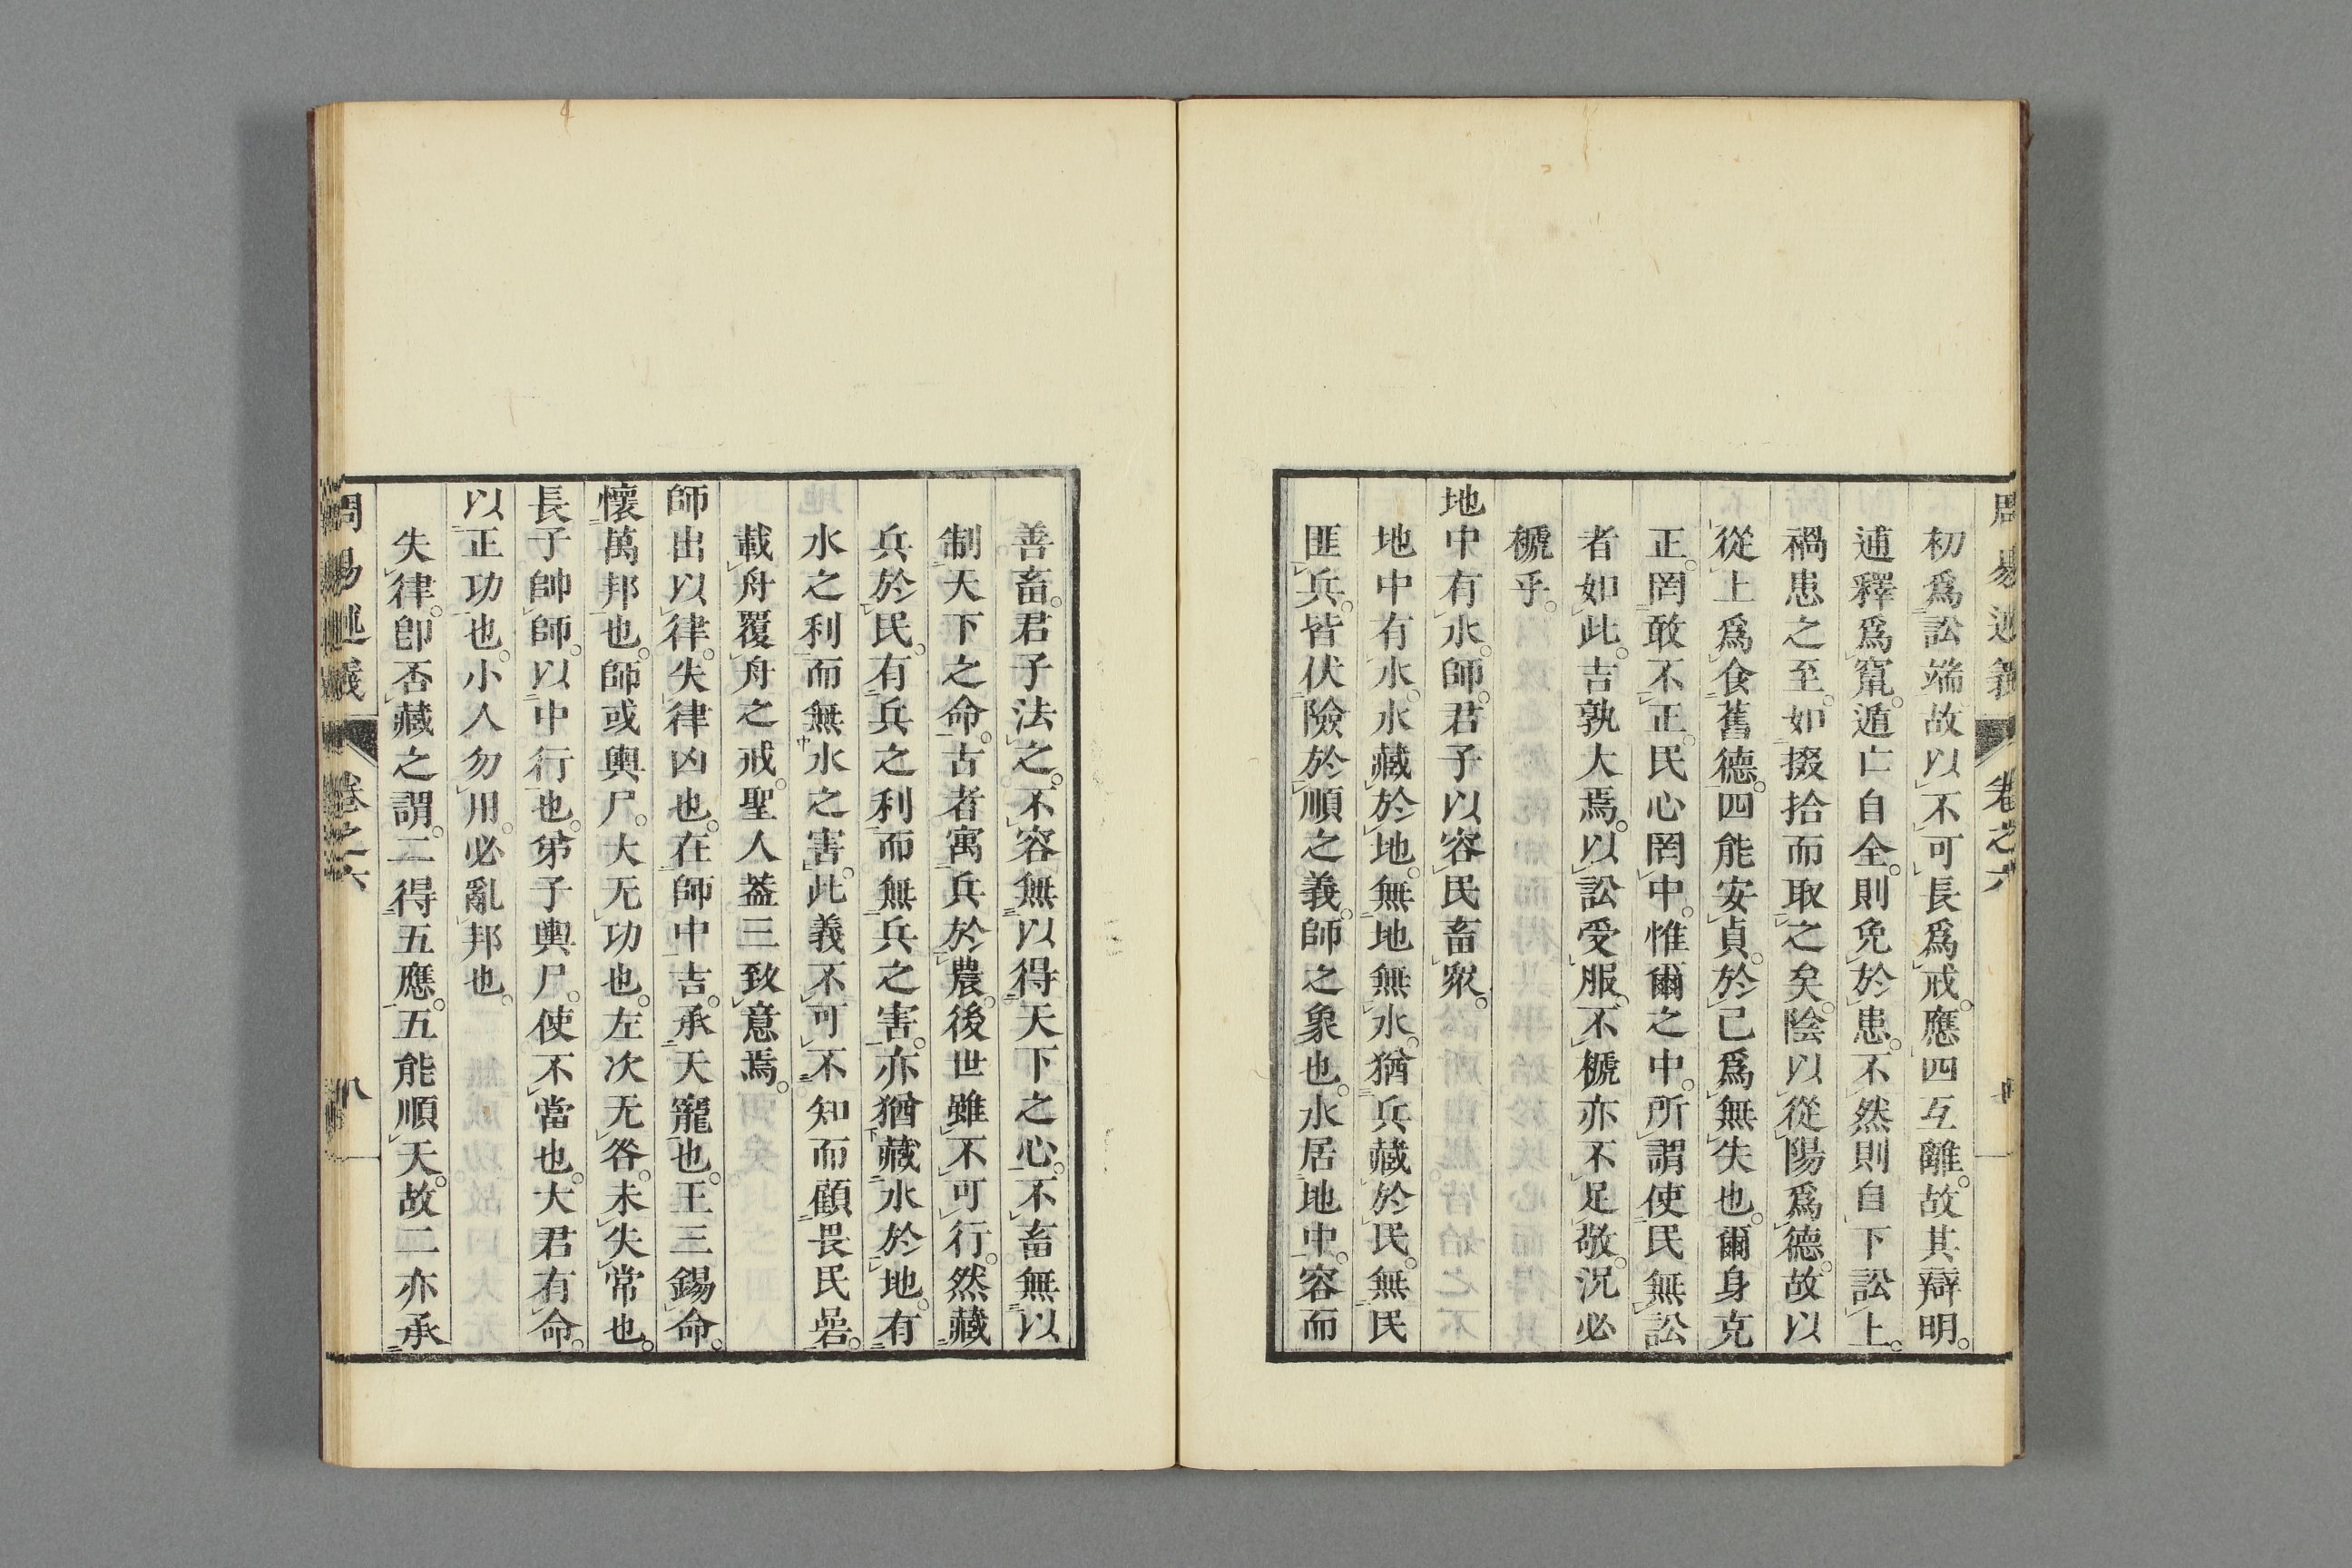 初爲訟端故以不可長爲戒。應四互離。故其辯明。
逋釋爲竄。遁亡自全。則免於患。不然則自下訟上。
禍患之至。如掇拾而取之矣。陰以從陽爲德。故以
從上爲食舊德。四能安貞。於己爲無失也。爾身克
正。罔敢不正。民心罔中。惟爾之中。所謂使民無訟
者如此。吉孰大焉。以訟受服。不褫亦不足敬。況必
褫乎。
地中有水。師。君子以容民畜眾。
地中有水。水藏於地。無地無水。猶兵藏於民。無民
匪兵。皆伏險於順之義。師之象也。水居地中。容而
善畜。君子法之。不容無以得天下之心。不畜無以
制天下之命。古者寓兵於農。後世雖不可行。然藏
兵於民。有兵之利而無兵之害。亦猶藏水於地。有
水之利而無水之害。此義不可不知而顧畏民碞。
載舟覆舟之戒。聖人葢三致意焉。
師出以律。失律凶也。在師中吉。承天寵也。王三錫命。
懷萬邦也。師或輿尸。大无功也。左次无咎。未失常也。
長子帥師。以中行也。弟子輿尸。使不當也。大君有命。
以正功也。小人勿用。必亂邦也。
失律。卽否藏之謂。二得五應。五能順天。故二亦承
周易述義 卷之六 八